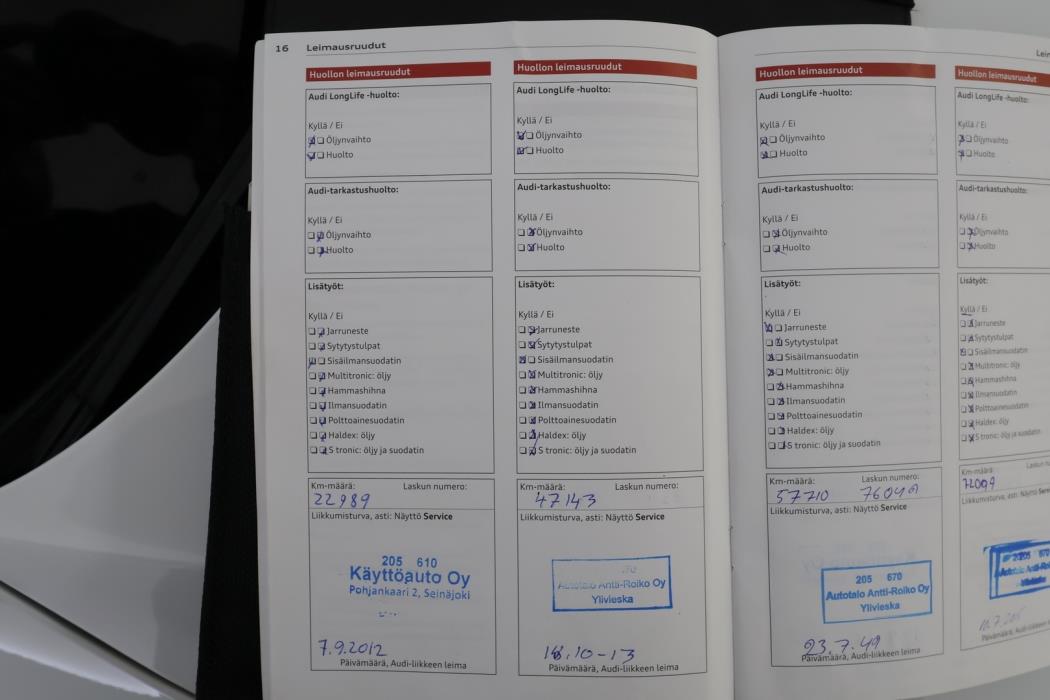 16 Leimausruudut
Huollon leimausruudut
Audi LongLife -huolto:
Kyllä / Ei
Öljynvaihto
Huolto
Audi-tarkastushuolto:
Kyllä / Ei
Öljynvaihto
Huolto
Lisätyöt:
Kyllä / Ei
Jarruneste
Sytytystulpat
Sisäilmansuodatin
Multitronic: öljy
Hammashihna
Ilmansuodatin
Polttoainesuodatin
Haldex: öljy
S tronic: öljy ja suodatin
Km-määrä: Laskun numero:
22989
Liikkumisturva, asti: Näyttö Service
205 610
Käyttöauto Oy
Pohjankaari 2, Seinäjoki
7.9.2012
Päivämäärä, Audi-liikkeen leima
Huollon leimausruudut
Audi LongLife -huolto:
Kyllä / Ei
Öljynvaihto
Huolto
Audi-tarkastushuolto:
Kyllä / Ei
Öljynvaihto
Huolto
Lisätyöt:
Kyllä / Ei
Jarruneste
Sytytystulpat
Sisäilmansuodatin
Multitronic: öljy
Hammashihna
Ilmansuodatin
Polttoainesuodatin
Haldex: öljy
S tronic: öljy ja suodatin
Km-määrä: Laskun numero:
47143
Liikkumisturva, asti: Näyttö Service
Autotalo Antti-Roiko Oy
Ylivieska
18.10-13
Päivämäärä, Audi-liikkeen leima
Huollon leimausruudut
Audi LongLife -huolto:
Kyllä / Ei
Öljynvaihto
Huolto
Audi-tarkastushuolto:
Kyllä / Ei
Öljynvaihto
Huolto
Lisätyöt:
Kyllä / Ei
Jarruneste
Sytytystulpat
Sisäilmansuodatin
Multitronic: öljy
Hammashihna
Ilmansuodatin
Polttoainesuodatin
Haldex: öljy
S tronic: öljy ja suodatin
Km-määrä: Laskun numero:
57710
Liikkumisturva, asti: Näyttö Service
205 670
Autotalo Antti-Roiko Oy
Ylivieska
Päivämäärä, Audi-liikkeen leima
Huollon leimausruudut
Audi LongLife -huolto:
Kyllä / Ei
Öljynvaihto
Huolto
Audi-tarkastushuolto:
Kyllä / Ei
Öljynvaihto
Huolto
Lisätyöt:
Kyllä / Ei
Jarruneste
Sytytystulpat
Sisäilmansuodatin
Multitronic: öljy
Hammashihna
Ilmansuodatin
Polttoainesuodatin
Haldex: öljy
S tronic: öljy ja suodatin
Km-määrä: Laskun
Liikkumisturva, asti: Näyttö
Päivämäärä, Audi-liikkeen